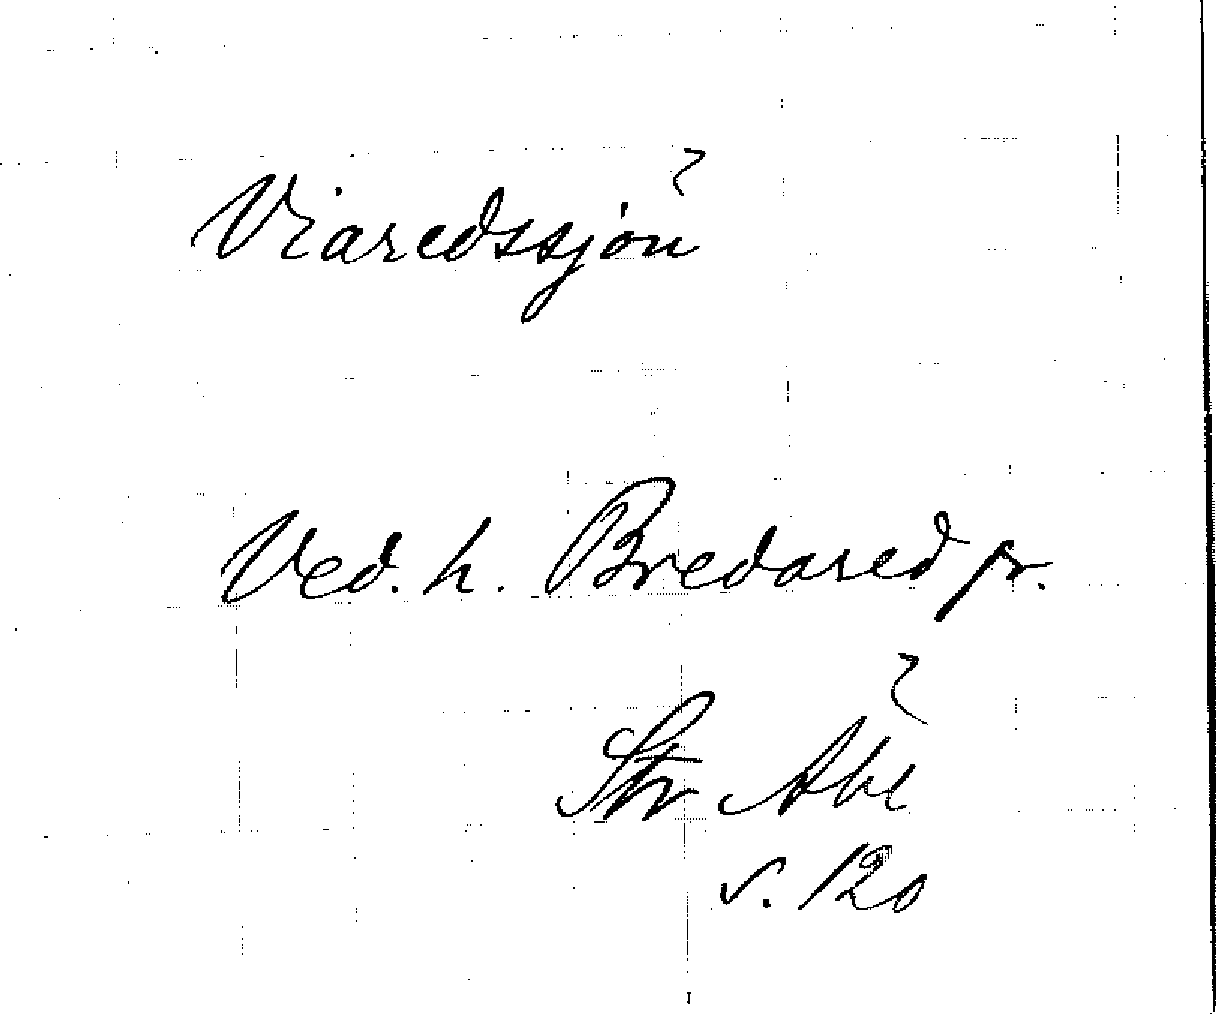 Viaredssjön
Ved. h. Bredared sn.
Str
s. 120